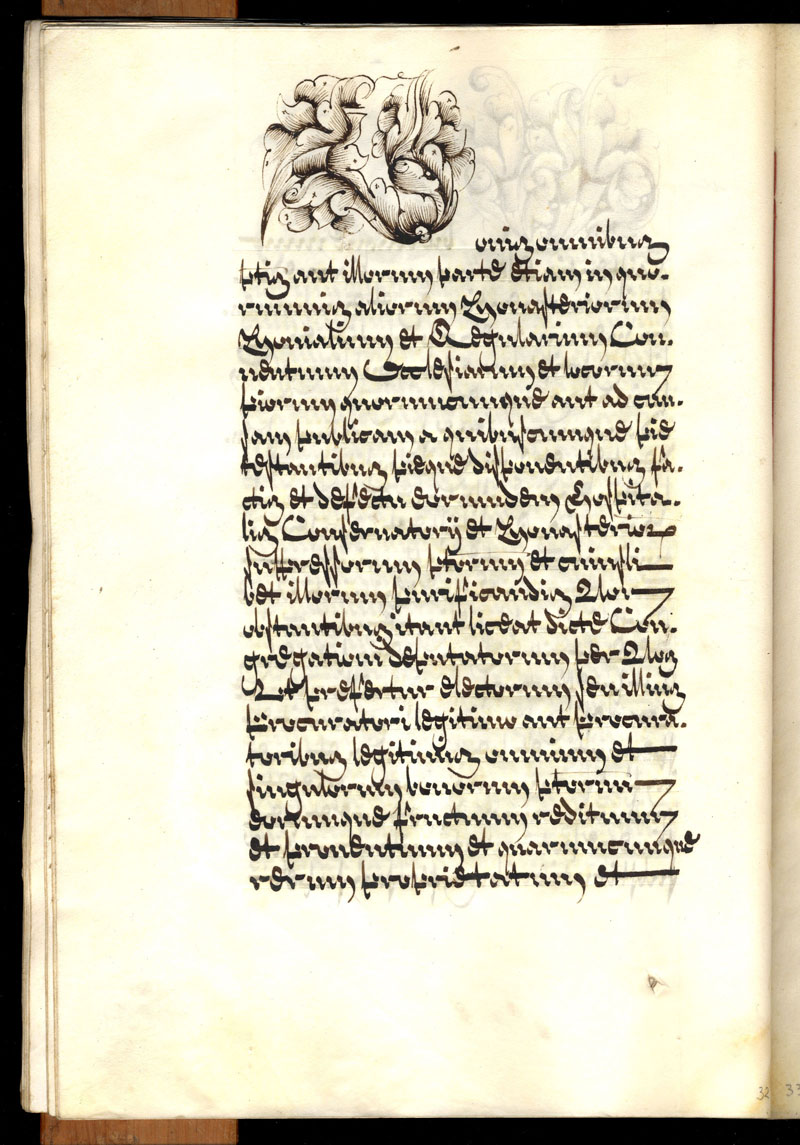 oniz omnibuz
ptiz aut illorum parte etiam in quo-
rumuiz aliorum Monasteriorum
Monialium et Regularium Con-
uentuum Ecclesiarum et locorum
piorum quorumcumque aut ad cau-
sam publicam a quibuscumque pie
testantibuz pieque disponentibuz fa-
ctiz et defectu eorumdem Hospita-
liz Conseruatorij et Monasterior
suppressorum ptorum et cuiusli
bet illorum purificandiz Non
obstantibuz itaut liceat dicte Con-
gregationi deputatorum per Noz
Ut prefertur electorum seu illiuz
procuratori legitimo aut procura-
toribuz legitimiz omnium et
singulorum bonorum ptorum
eorumque fructuum redituum
et prouentuum et quarumcumque
rerum proprietatum et
32 33